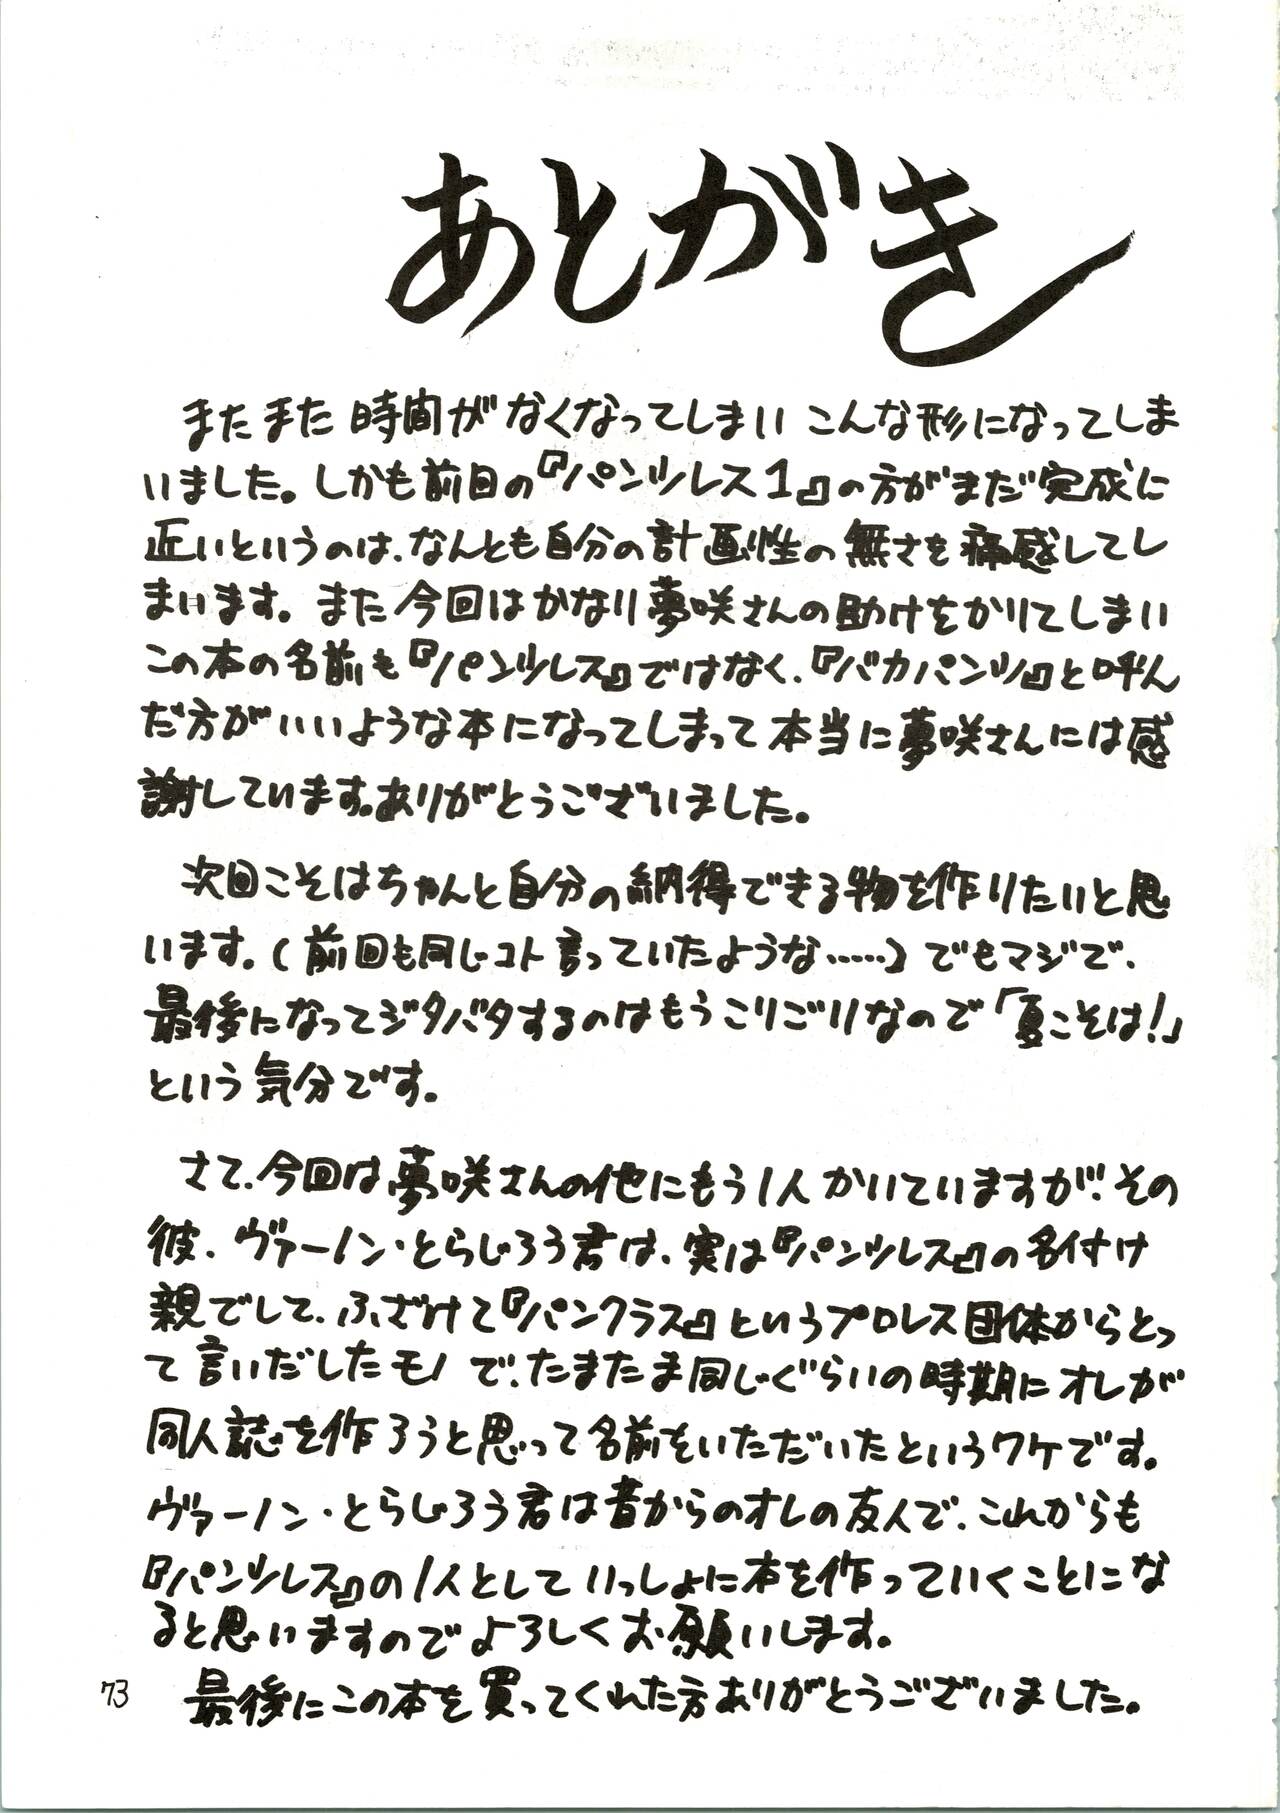 あとがき
またまた時間がなくなってしまいこんな形になってしま
いました。しかも前回の『パンツレス1』の方がまだ完成に
近いというのは、なんとも自分の計画性の無さを痛感してし
まいます。また今回はかなり夢咲さんの助けをかりてしまい
この本の名前も『パンツレス』ではなく、『バカパンツ』と呼ん
だ方がいいような本になってしまって本当に夢咲さんには感
謝しています。ありがとうございました。
次回こそはちゃんと自分の納得できる物を作りたいと思
います。(前回も同じコト言っていたような……)でもマジで、
最後になってジタバタするのはもうこりごりなので「夏こそは!」
という気分です。
さて、今回は夢咲さんの他にもう1人かいていますが、その
彼、ヴァーノン・とらじろう君は、実は『パンツレス』の名付け
親でして、ふざけて『パンクラス』というプロレス団体からとっ
て言いだしたモノで、たまたま同じぐらいの時期にオレが
同人誌を作ろうと思って名前をいただいたというワケです。
ヴァーノン・とらじろう君は昔からのオレの友人で、これからも
『パンツレス』の1人としていっしょに本を作っていくことにな
ると思いますのでよろしくお願いします。
最後にこの本を買ってくれた方ありがとうございました。
73